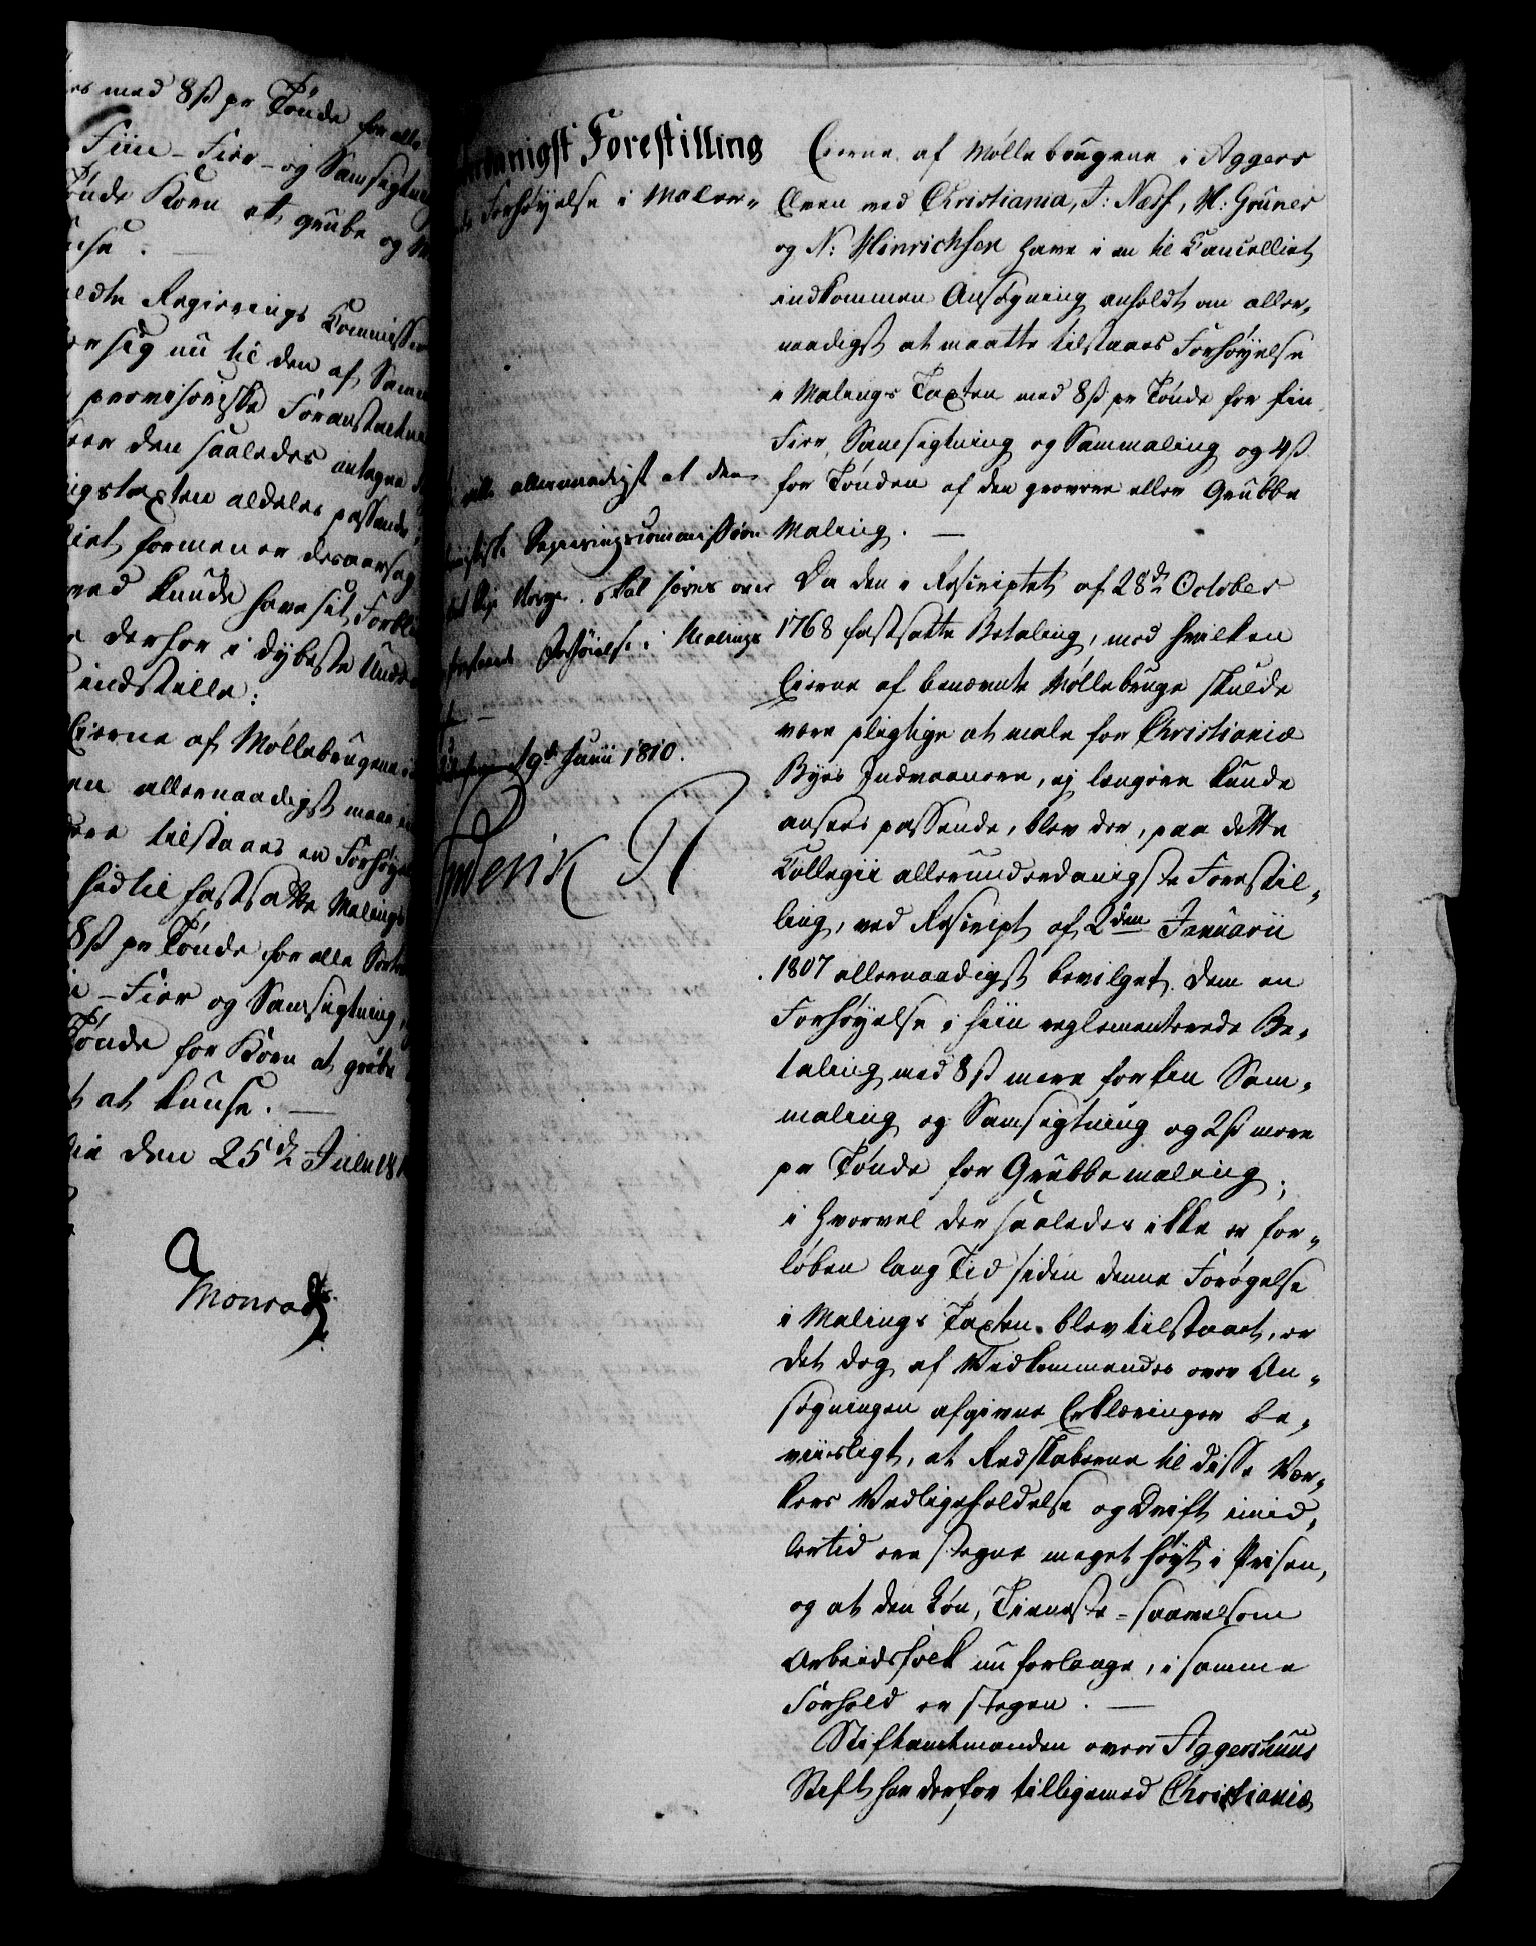 med 8 ß pr Tønde for alle
Fiin- Fiir- og Samsigtning
Tønde Korn at grube og
Regierings Commission
sig nu til den af
provisoriske Foranstaltning
den saaledes antagne
taxten aldeles passende
formener desaarsag
kunde have sit Forbl
derfor i dybeste Under
indstille:
Eierne af Møllebrugene i
allernaadigst maae
tilstaaes en Forhøyel
hidtil fastsatte Malings
8 ß pr Tønde for alle Sorter
Fiir og Samsigtning,
Tønde for Korn at grube
at knuse. —
den 25de Julii 18
Monrad
Forestilling
Forhøyelse i Maler-
allernaadigst at den
Regieringscommission
Norge, skal høres over
Forhøielse i Malings
19de Junii 1810.
Frederik R
Eierne af Møllebrugene i Aggers
Elven ved Christiania, J: Næss, H: Grüner
og N: Hinrichsen have i en til Cancelliet
indkommen Ansøgning anholdt om aller-
naadigst at maatte tilstaaes Forhøyelse
i Malings Taxten med 8 ß pr Tønde for fin
Fiir, Samsigtning og Sammaling og 4 ß
for Tønden af den grovere eller Grubbe
Maling. —
Da den i Rescriptet af 28de October
1768 fastsatte Betaling, mod hvilken
Eierne af benævnte Møllebruge skulde
være pligtige at male for Christianiæ
Byes Indvaanere, ej længere kunde
ansees passende, blev der, paa dette
Collegii allerunderdanigste Forestil-
ling, ved Rescript af 2den Januarii
1807 allernaadigst bevilget dem en
Forhøyelse i hiin reglementerede Be-
taling med 8 ß mere for fin Sam-
maling og Samsigtning og 2 ß mere
pr Tønde for Grubbemaling;
i hvorvel der saaledes ikke er for-
løben lang Tid siden denne Forøgelse
i Malings Taxten blev tilstaaet, er
det dog af Vedkommendes over An-
søgningen afgivne Erklæringer be-
viisligt, at Redskaberne til disse Vær-
kers Vedligeholdelse og Drift imid-
lertid ere stegne meget høyt i Prisen,
og at den Løn, Tieneste- saavelsom
Arbeidsfolk nu forlange, i samme
Forhold er stegen. —
Stiftamtmanden over Aggershuus
Stift har derfor tilligemed Christianiæ